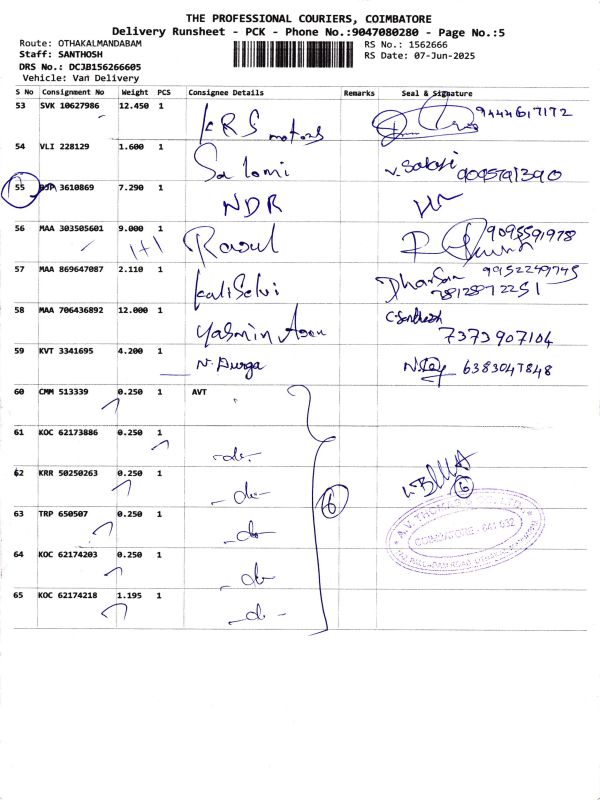 THE PROFESSIONAL COURIERS, COIMBATORE
Delivery Runsheet - PCK - Phone No.:9047080280 - Page No.:5
Route: OTHAKALMANDABAM
RS No.: 1562666
Staff: SANTHOSH
RS Date: 07-Jun-2025
DRS No.: DCJB156266605
Vehicle: Van Delivery
S No Consignment No Weight PCS Consignee Details Remarks Seal & Signature
53 SVK 10627986 12.450 1 KRS motors 9444617172
54 VLI 228129 1.600 1 Salomi
55 3610869 7.290 1 NDR
56 MAA 303505601 9.000 1 1+1 9095591978
57 MAA 869647087 2.110 1 KaliSelvi Dharsan
58 MAA 706436892 12.000 1 Yasmin 7373907104
59 KVT 3341695 4.200 1 N. Durga 6383047848
60 CMM 513339 0.250 1 AVT
61 KOC 62173886 0.250 1 -do-
62 KRR 50250263 0.250 1 -do- 6 6
63 TRP 650507 0.250 1 -do-
64 KOC 62174203 0.250 1 -do-
65 KOC 62174218 1.195 1 -do-
COIMBATORE - 641 032